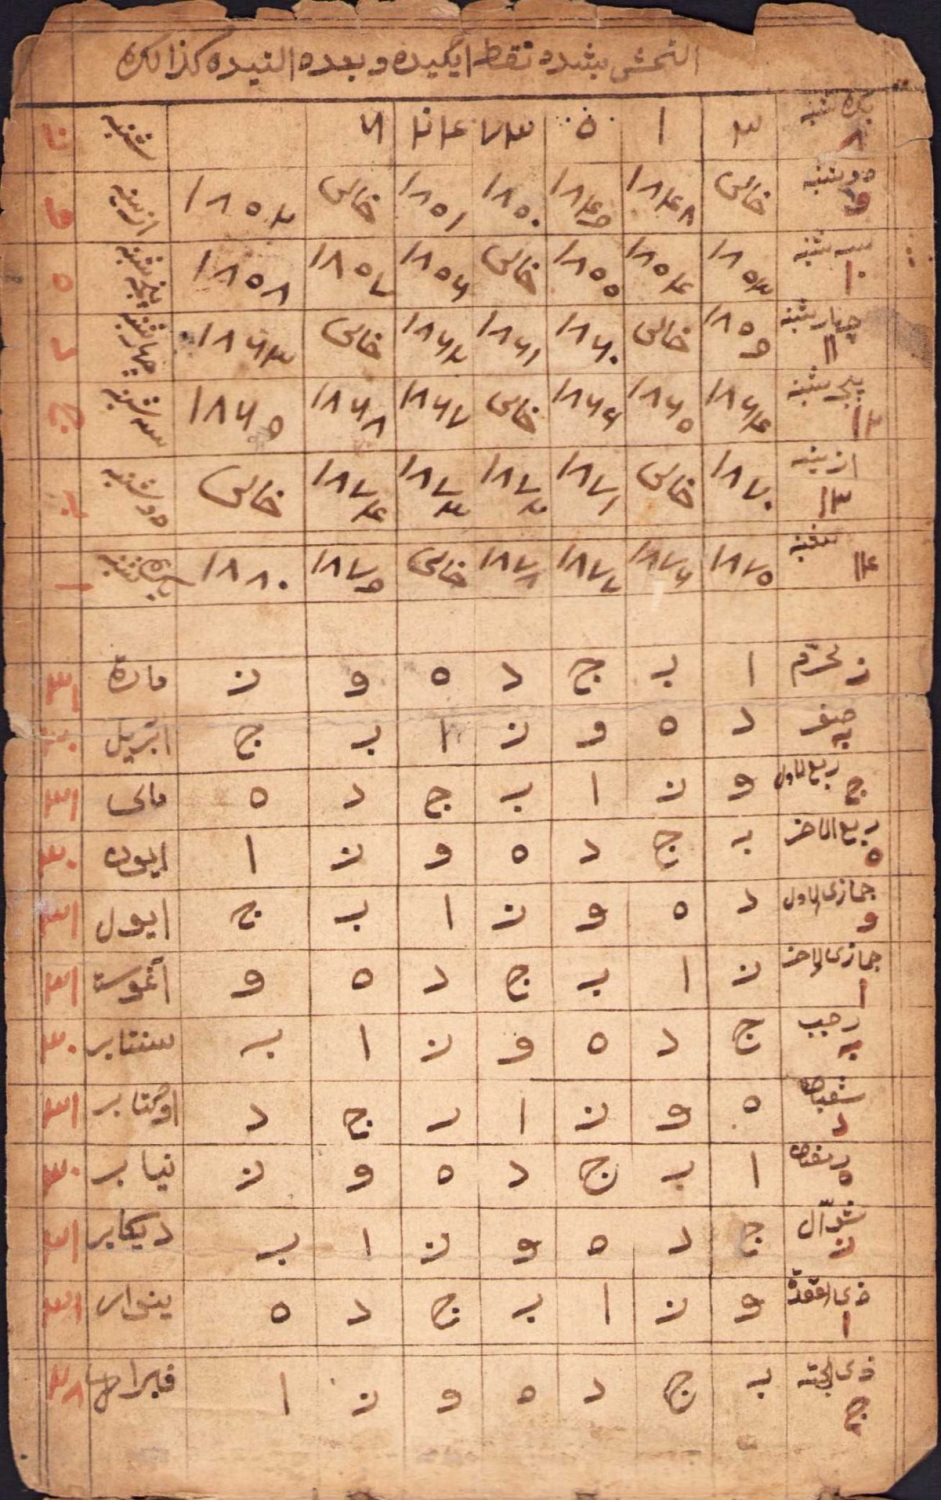 یکشنبه ۸ ۳ ۱ ۵ ۷۳ ۶ شنبه
دوشنبه ۹ خالی ۱۸۴۸ ۱۸۴۹ ۱۸۵۰ ۱۸۵۱ خالی ۱۸۵۲ ازینه
سه شنبه ۱۰ ۱۸۵۳ ۱۸۵۴ ۱۸۵۵ خالی ۱۸۵۶ ۱۸۵۷ ۱۸۵۸ پنجشنبه ۵
چهارشنبه ۱۱ ۱۸۵۹ خالی ۱۸۶۰ ۱۸۶۱ ۱۸۶۲ خالی ۱۸۶۳ چهارشنبه
پنجشنبه ۱۲ ۱۸۶۴ ۱۸۶۵ ۱۸۶۶ خالی ۱۸۶۷ ۱۸۶۸ ۱۸۶۹ سه شنبه ج
ازینه ۱۳ ۱۸۷۰ خالی ۱۸۷۱ ۱۸۷۲ ۱۸۷۳ ۱۸۷۴ خالی دوشنبه ب
شنبه ۱۴ ۱۸۷۵ ۱۸۷۶ ۱۸۷۷ ۱۸۷۸ خالی ۱۸۷۹ ۱۸۸۰ یکشنبه ا
محرم ز ا ب ج د ه و ز مارت ۳۱
صفر ب د ه و ز ا ب ج اپریل ۳۰
ربیع الاول ج و ز ا ب ج د ه مای ۳۱
ربیع الاخر ه ب ج د ه و ز ا ایون ۳۰
جمازی الاول و د ه و ز ا ب ج ایول ۳۱
جمازی الاخر ا ز ا ب ج د ه و اغوست ۳۱
رجب ب ج د ه و ز ا ب سنتابر ۳۰
شعبان د ه و ز ا ب ج د اوکتابر ۳۱
رمضان ه ا ب ج د ه و ز نیابر ۳۰
شوال ز ج د ه و ز ا ب دیکابر ۳۱
ذی القعدة ا و ز ا ب ج د ه ینوار ۳۱
ذی الحجه ج ب ج د ه و ز ا فبرال ۲۸